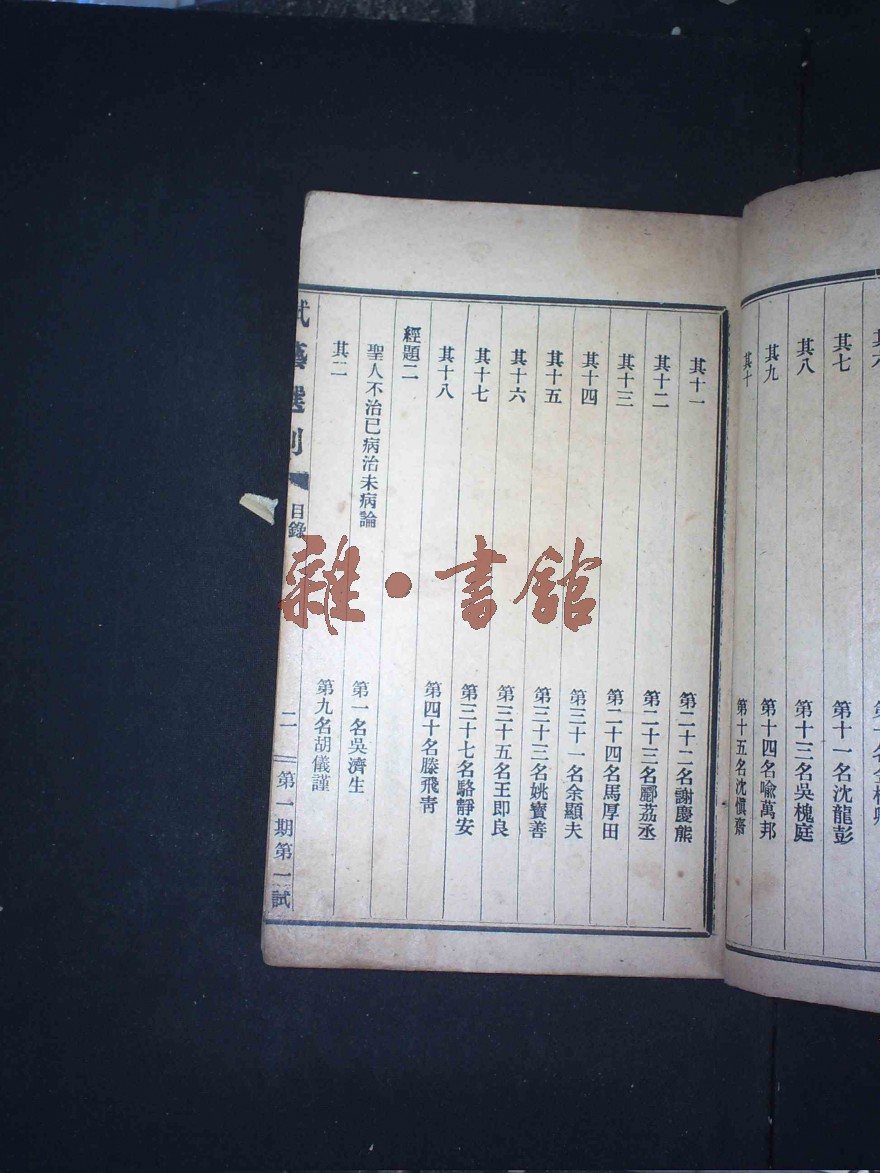 其七
第十一名沈龍彭
其八
第十三名吳槐庭
其九
第十四名喩萬邦
其十
第十五名沈愼齋
其十一
第二十二名謝慶熊
其十二
第二十三名酈荔丞
其十三
第二十四名馬厚田
其十四
第三十一名余顯夫
其十五
第三十三名姚寶善
其十六
第三十五名王即良
其十七
第三十七名駱靜安
其十八
第四十名滕飛靑
經題二
聖人不治已病治未病論
第一名吳濟生
其二
第九名胡儀謹
藝選刊
目錄
二
第一期第一試
雜·書館